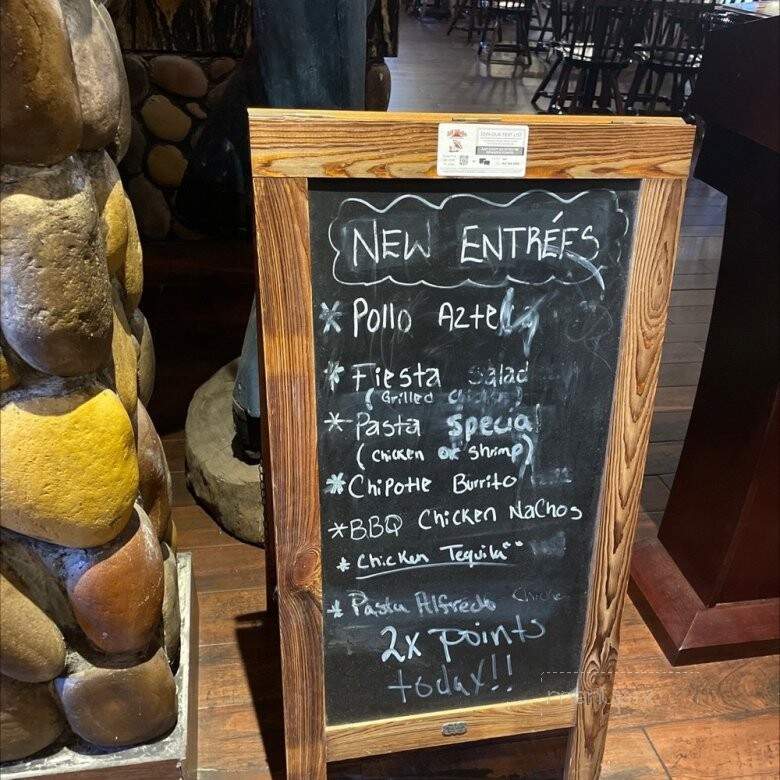 NEW ENTRÉES
* Pollo Azteca
* Fiesta Salad
(Grilled chicken)
* Pasta special
(chicken or shrimp)
* Chipotle Burrito
* BBQ Chicken Nachos
* Chicken Tequila
* Pasta Alfredo Chicke
2x points
today!!